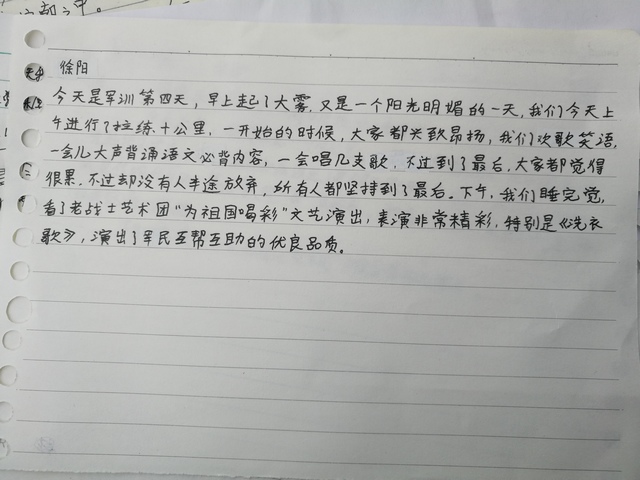 之中。
徐阳
今天是军训第四天，早上起了大雾，又是一个阳光明媚的一天，我们今天上
午进行了拉练十公里，一开始的时候，大家都兴致昂扬，我们欢歌笑语，
一会儿大声背诵语文必背内容，一会唱几支歌，不过到了最后，大家都觉得
很累，不过却没有人半途放弃，所有人都坚持到了最后。下午，我们睡完觉，
看了老战士艺术团“为祖国喝彩”文艺演出，表演非常精彩，特别是《洗衣
歌》，演出了军民互帮互助的优良品质。